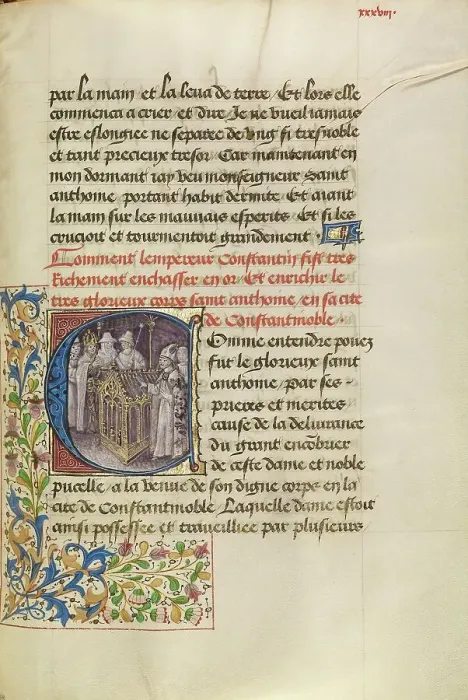 xxxviii.
par la main et la leua de terre / Et lors elle
commenca a crier et dire Je ne vueil iamais
estre eslongiee ne separee de vng si tresnoble
et tant precieux tresor / Car maintenant en
mon dormant iay veu monseigneur saint
anthoine portant habit dermite / Et aiant
la main sur les mauuais esperits / Et si les
crucioit et tourmentoit grandement .
Comment lempereur Constantin fist tres
Richement enchasser en or / Et enrichir le
tres glorieux corps saint anthoine / en sa cite
de Constantinoble .
Comme entendre pouez
fut le glorieux saint
anthoine / par ses
prieres et merites
cause de la deliurance
du grant encōbrier
de ceste dame et noble
pucelle / a la venue de son digne corps en la
cite de Constantinoble / Laquelle dame estoit
ainsi possessee et trauelliee par plusieurs